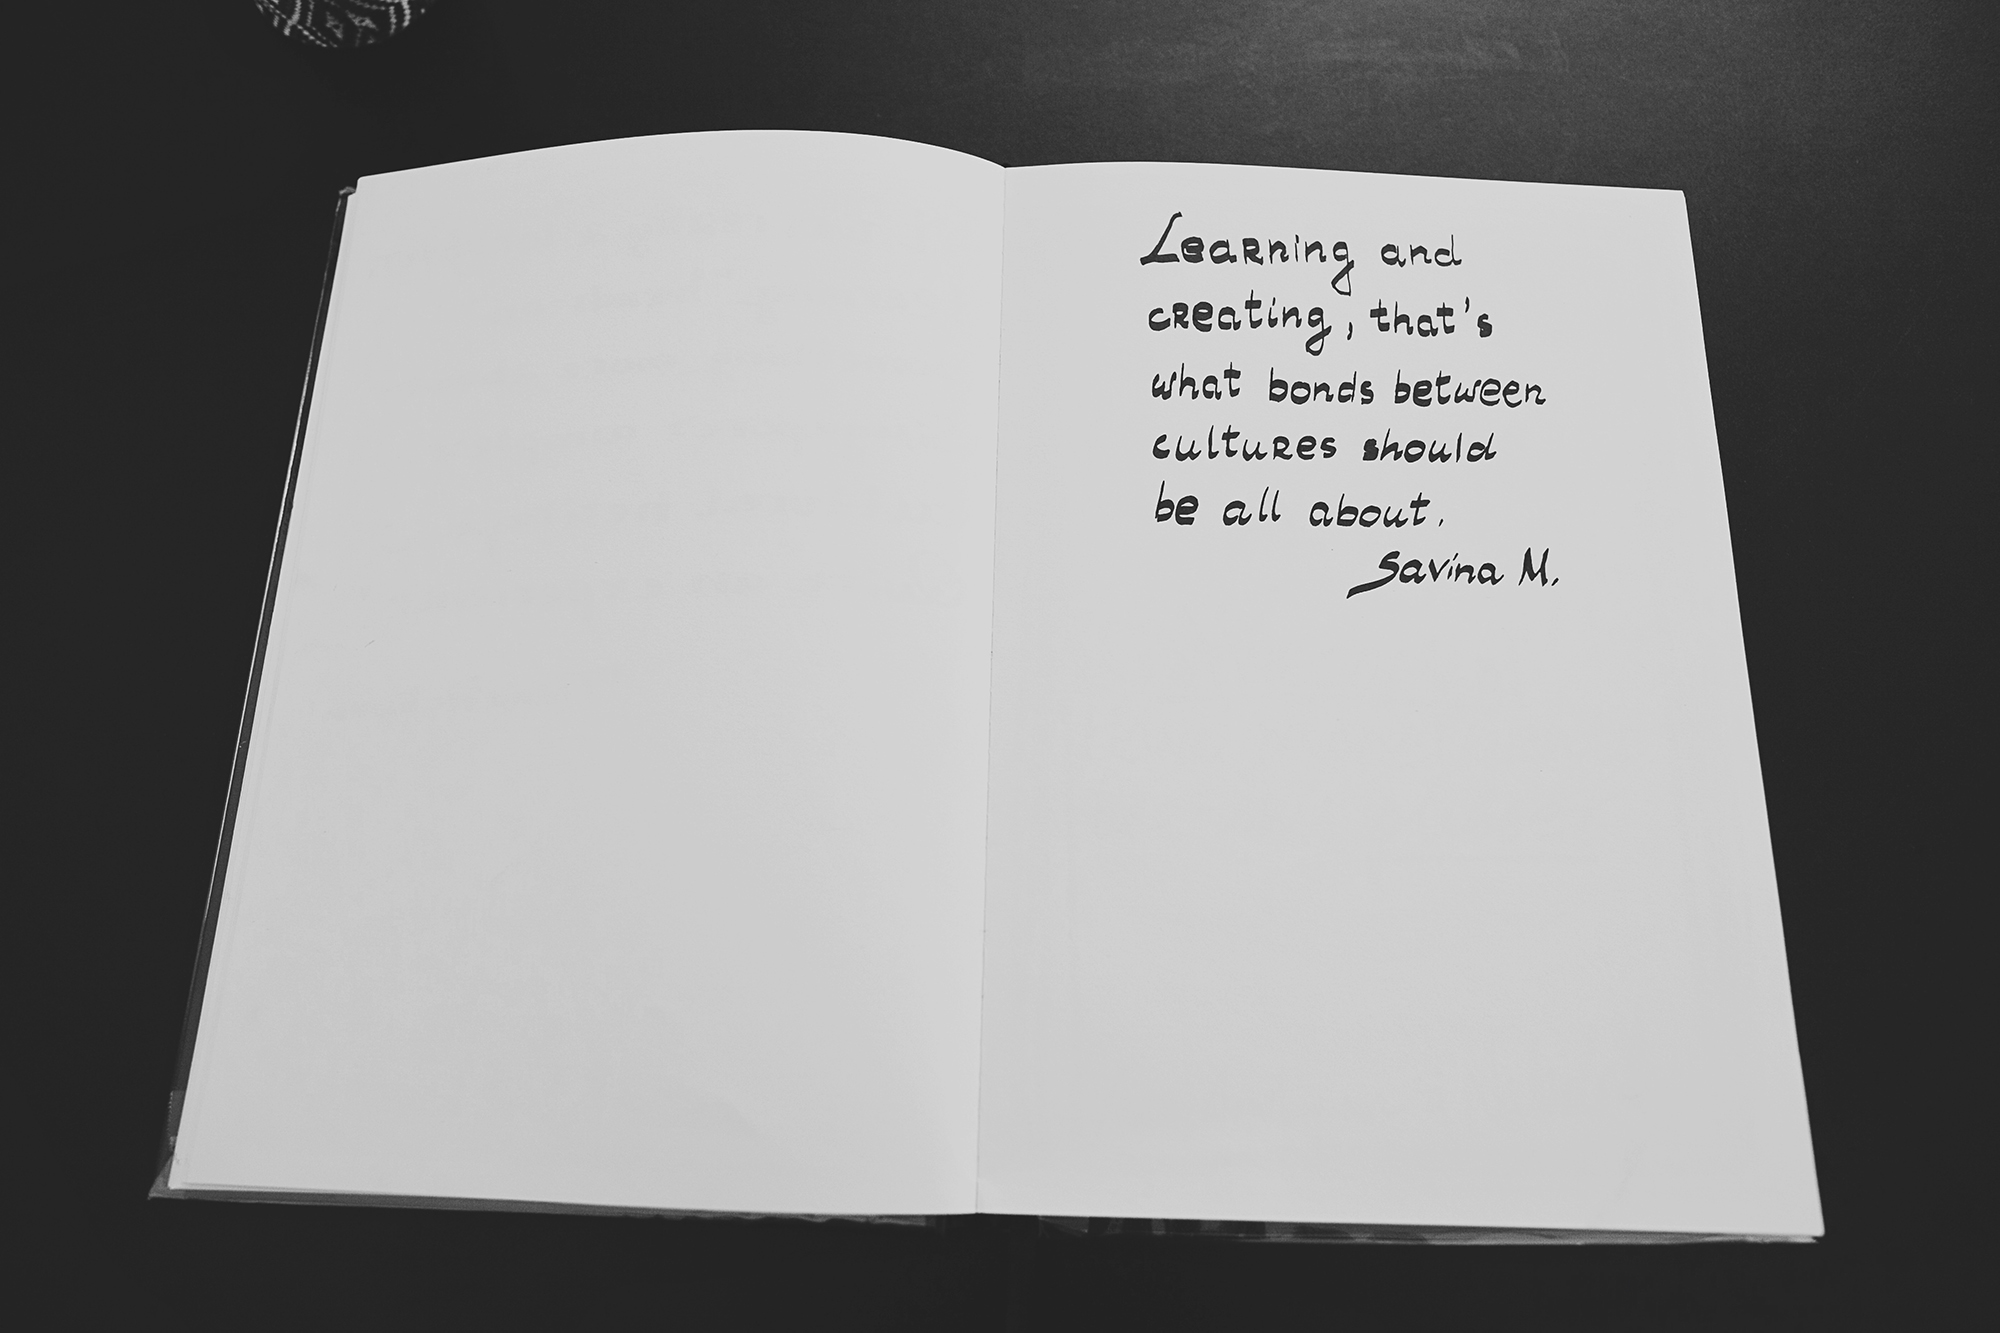 Learning and
creating, that's
what bonds between
cultures should
be all about.
Savina M.